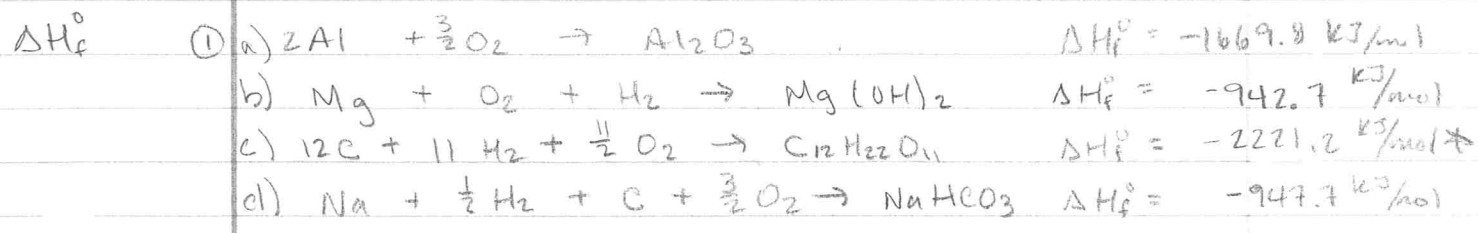 ΔH°f ① a) 2Al + 3/2 O2 → Al2O3 ΔH°f = -1669.8 kJ/mol
b) Mg + O2 + H2 → Mg(OH)2 ΔH°f = -942.7 kJ/mol
c) 12C + 11 H2 + 11/2 O2 → C12H22O11 ΔH°f = -2221.2 kJ/mol *
d) Na + 1/2 H2 + C + 3/2 O2 → NaHCO3 ΔH°f = -947.7 kJ/mol